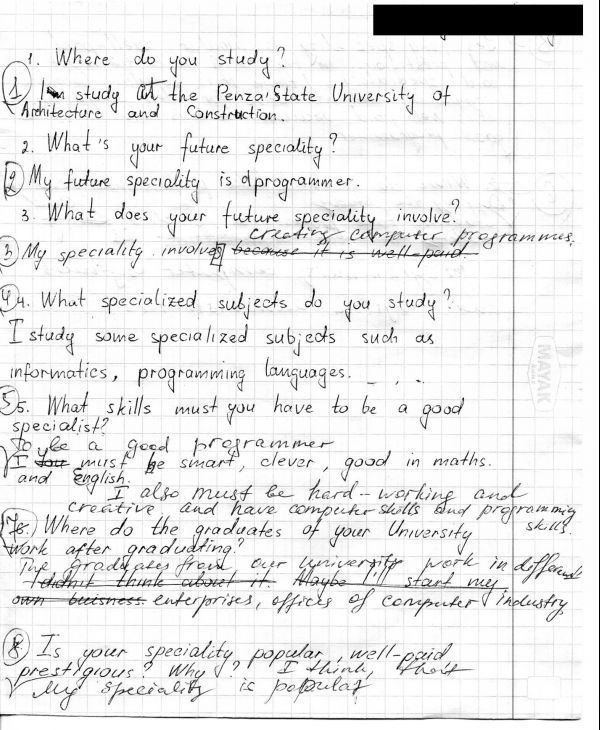 1. Where do you study?
1 I study at the Penza State University of
Architecture and Construction.
2. What's your future speciality?
2 My future speciality is a programmer.
3. What does your future speciality involve?
creating computer programmes.
3 My speciality involves because it is well-paid.
4 4. What specialized subjects do you study?
I study some specialized subjects such as
informatics, programming languages. - , .
5 5. What skills must you have to be a good
specialist?
To be a good programmer
I you must be smart, clever, good in maths.
and English.
I also must be hard-working and
creative and have computer skills and programming
skills.
7. Where do the graduates of your University
work after graduating?
The graduates from our university work in different
I didn't think about it. Maybe I'll start my
own buisness. enterprises, offices of computer industry
8. Is your speciality popular, well-paid
prestigious? Why? I think, that
My speciality is popular
MAYAK